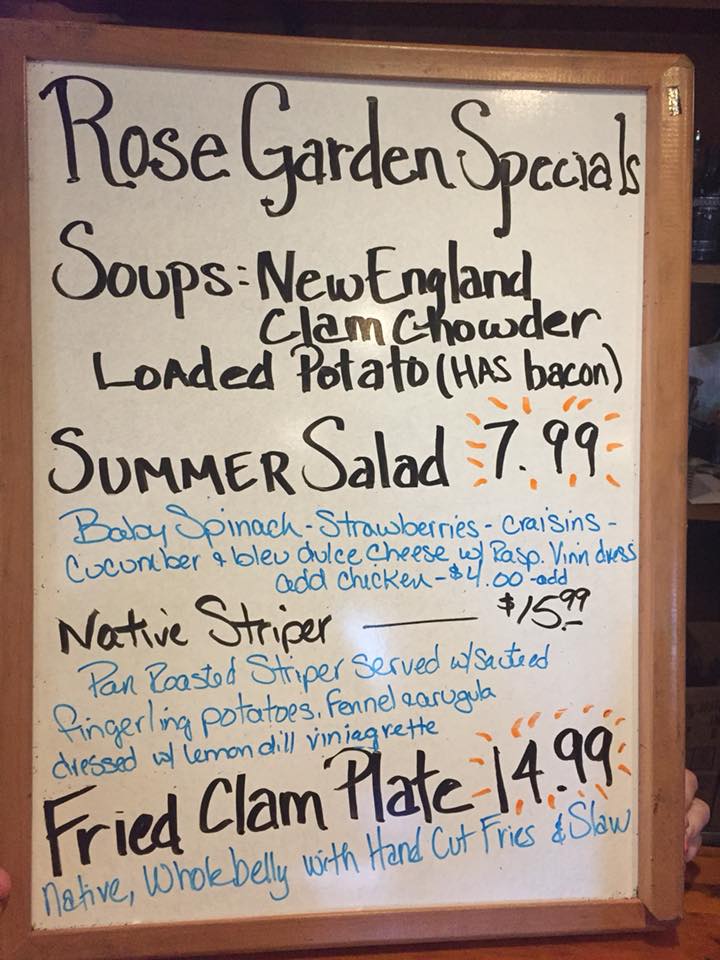 Rose Garden Specials
Soups: New England
Clam Chowder
Loaded Potato (HAS bacon)
SUMMER Salad 7.99
Baby Spinach - Strawberries - Craisins -
Cucumber & bleu dulce cheese w/ Rasp. Vinn dress
add chicken - $4.00 - add
Native Striper — $15.99
Pan Roasted Striper served w/ Sauteed
fingerling potatoes, fennel & arugula
dressed w/ lemon dill viniagrette
Fried Clam Plate 14.99
Native, Whole belly with Hand Cut Fries & Slaw